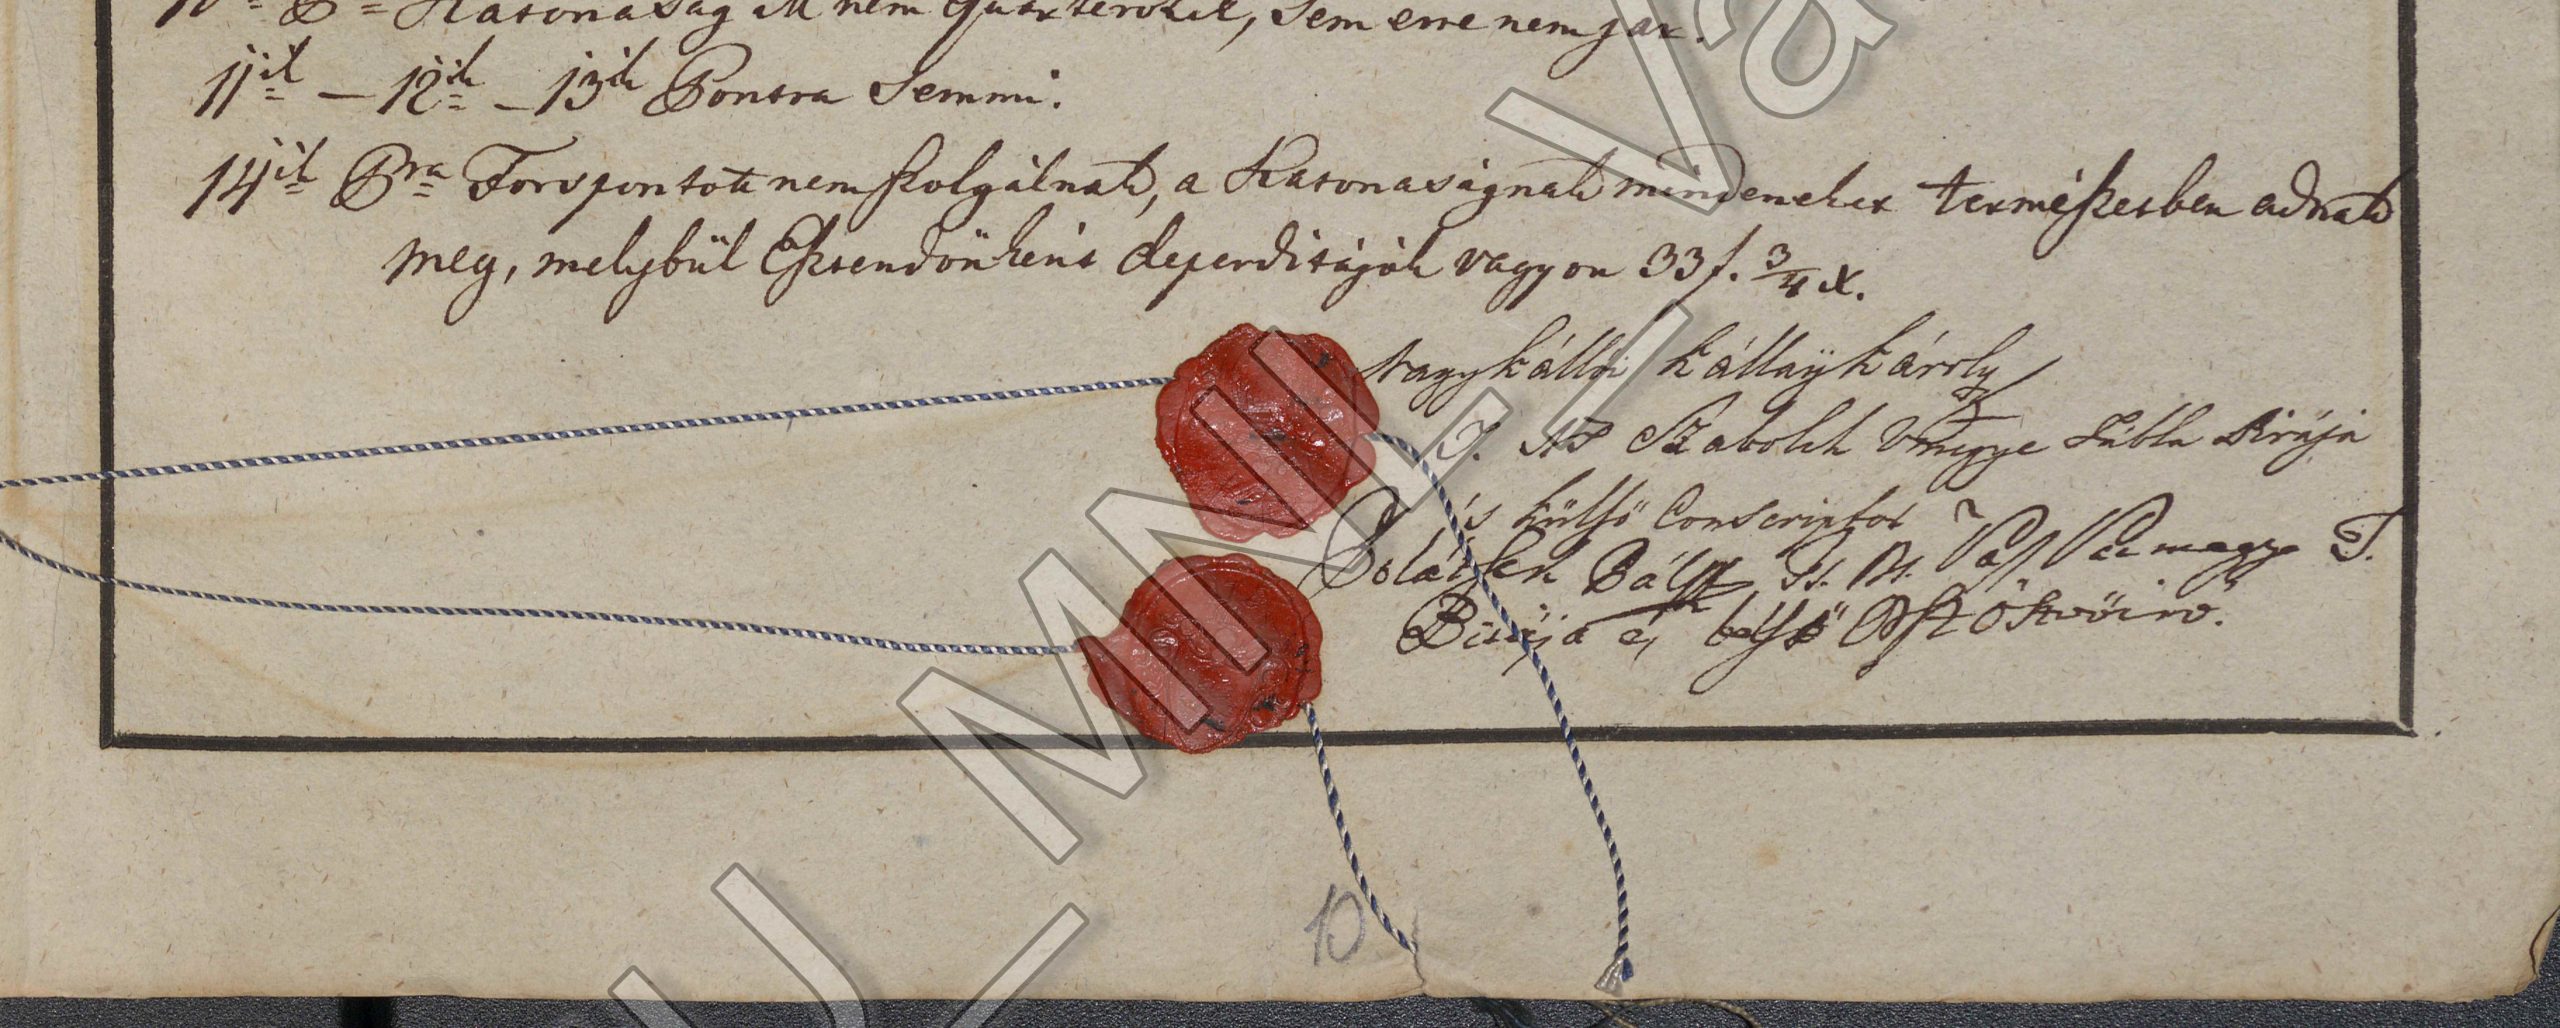 10ik P Katonaság itt nem Quártérozik, sem erre nem jár.
11ik — 12ik – 13ik Pontra Semmi.
14ik Pra Forspontot nem szolgálnak, a Katonaságnak mindeneket természetben adnak
meg, melybül Esztendőnként deperditájok vagyon 33 f. 3/4 x.
Nagykállói Kállaÿ Károly
T. N Szabolch Vmegye Tábla Birája
és külső Conscriptor
Bálint T. N. Vas Vármegye T.
Birája és belső Öszve író.
10
MNL